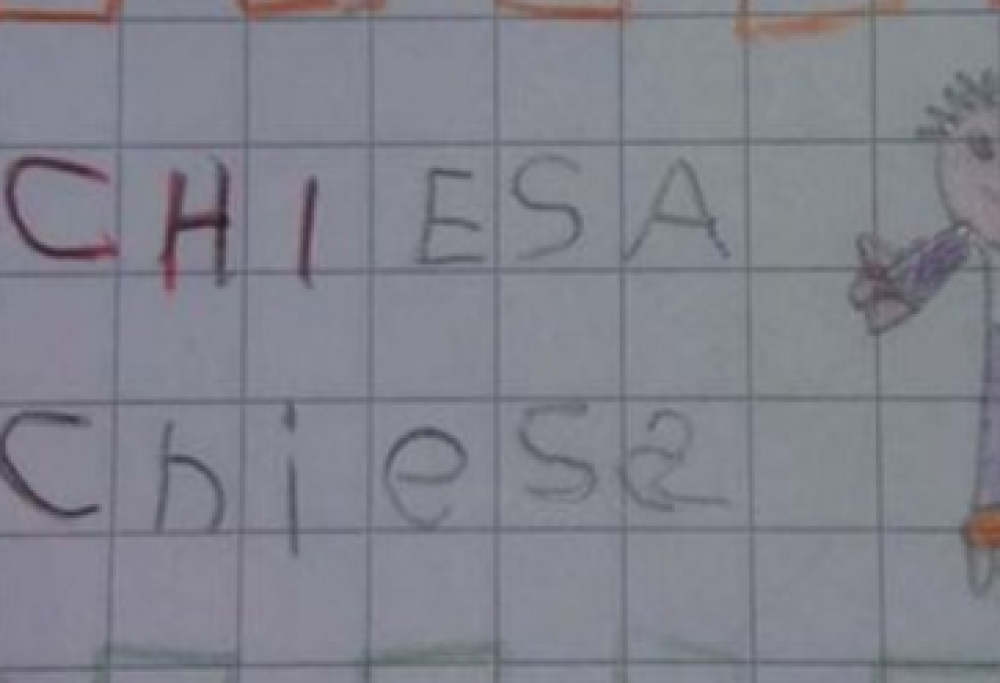 CHIESA
Chiesa